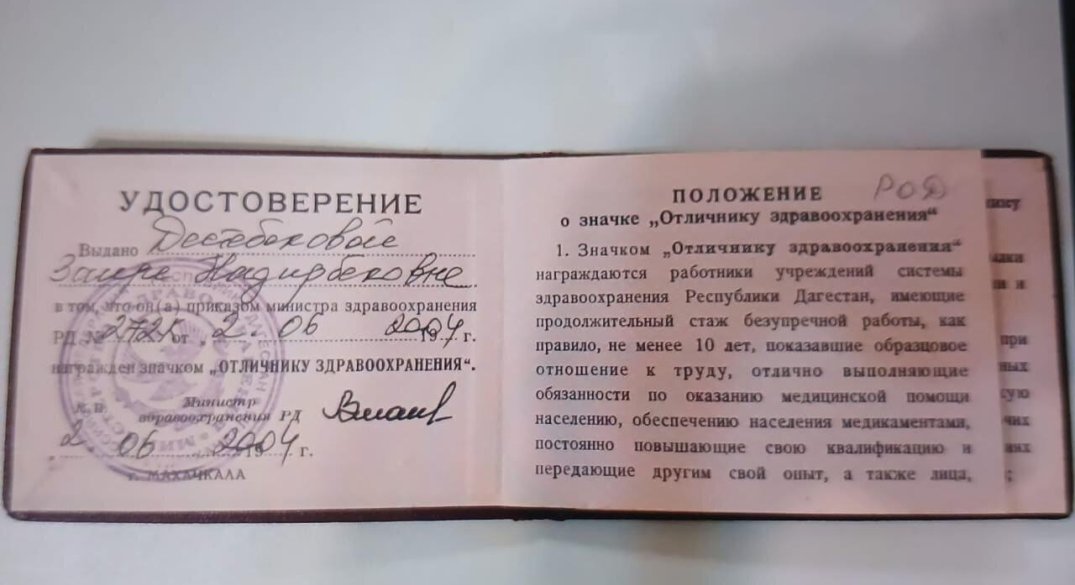 УДОСТОВЕРЕНИЕ
Выдано
Заире Надирбековне
в том, что он(а) приказом министра здравоохранения
РД № 272к от „ 2 . 06 2004 г.
награжден значком „ОТЛИЧНИКУ ЗДРАВООХРАНЕНИЯ“.
М. П. Министр
здравоохранения РД
„ 2 06 2004 г.
г. МАХАЧКАЛА
ПОЛОЖЕНИЕ
о значке „Отличнику здравоохранения“
1. Значком „Отличнику здравоохранения“
награждаются работники учреждений системы
здравоохранения Республики Дагестан, имеющие
продолжительный стаж безупречной работы, как
правило, не менее 10 лет, показавшие образцовое
отношение к труду, отлично выполняющие
обязанности по оказанию медицинской помощи
населению, обеспечению населения медикаментами,
постоянно повышающие свою квалификацию и
передающие другим свой опыт, а также лица,